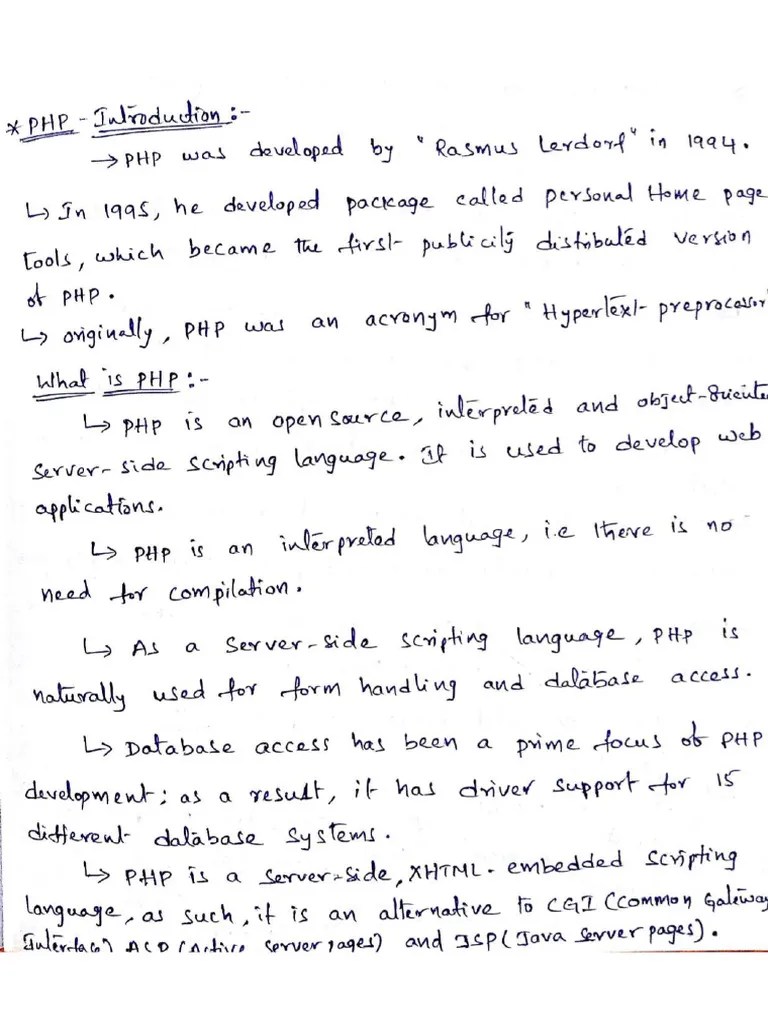 * PHP - Introduction :-
→ PHP was developed by "Rasmus Lerdorf" in 1994.
↳ In 1995, he developed package called personal Home page
tools, which became the first publicily distributed version
of PHP.
↳ originally, PHP was an acronym for "Hypertext preprocessor
What is PHP :-
↳ PHP is an open source, interpreted and object-oriente
server-side scripting language. It is used to develop web
applications.
↳ PHP is an interpreted language, i.e there is no
need for compilation.
↳ As a server-side scripting language, PHP is
naturally used for form handling and database access.
↳ Database access has been a prime focus of PHP
development; as a result, it has driver support for 15
different database systems.
↳ PHP is a server-side, XHTML- embedded scripting
language, as such, it is an alternative to CGI (Common Gateway
Interface) ASP (Active server pages) and JSP (Java server pages).